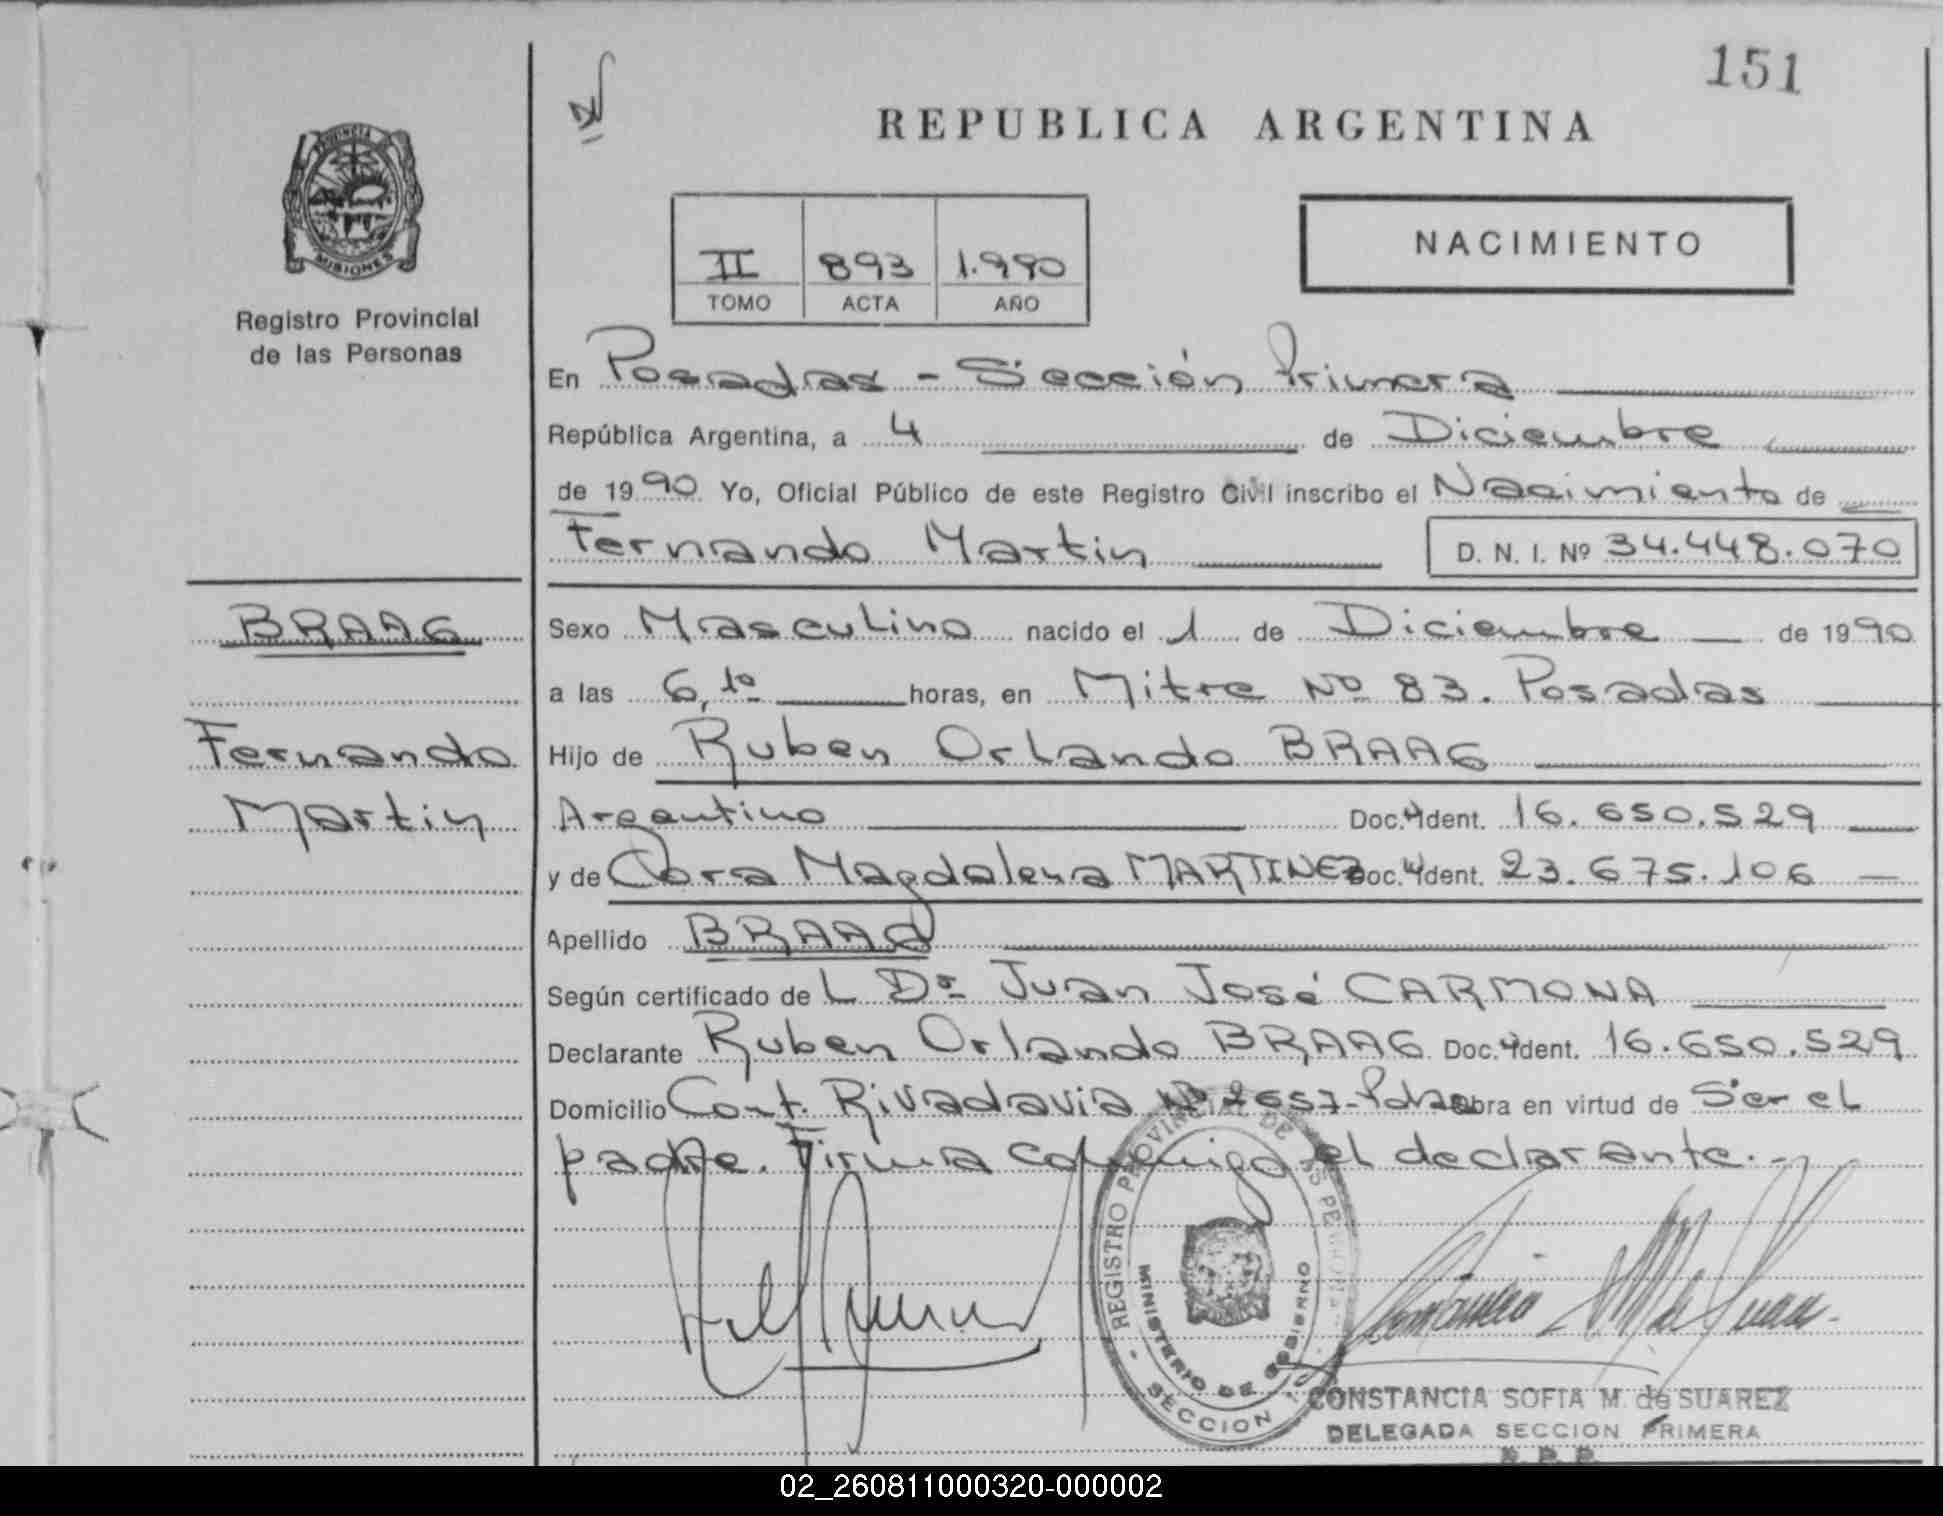 151
REPUBLICA ARGENTINA
PROVINCIA
MISIONES
Registro Provincial
de las Personas
II 893 1.990
TOMO ACTA AÑO
NACIMIENTO
En Posadas - Sección Primera
República Argentina, a 4 de Diciembre
de 1990 Yo, Oficial Público de este Registro Civil inscribo el Nacimiento de
Fernando Martin D. N. I. Nº 34.448.070
BRAAG
Sexo Masculino nacido el 1 de Diciembre de 1990
a las 6,10 horas, en Mitre Nº 83. Posadas
Fernando
Hijo de Ruben Orlando BRAAG
Martin
Argentino Doc. Ident. 16.650.529
y de Clara Magdalena MARTINEZ Doc. Ident. 23.675.106
Apellido BRAAG
Según certificado de L Dr. Juan José CARMONA
Declarante Ruben Orlando BRAAG Doc. Ident. 16.650.529
Domicilio Cont. Rivadavia Nº 2657-Pdas Obra en virtud de Ser el
padre. Firma conmigo el declarante.-
REGISTRO PROVINCIAL DE LAS PERSONAS
MINISTERIO DE GOBIERNO
SECCION 1
CONSTANCIA SOFIA M. de SUAREZ
DELEGADA SECCION PRIMERA
R.P.P.
02_260811000320-000002